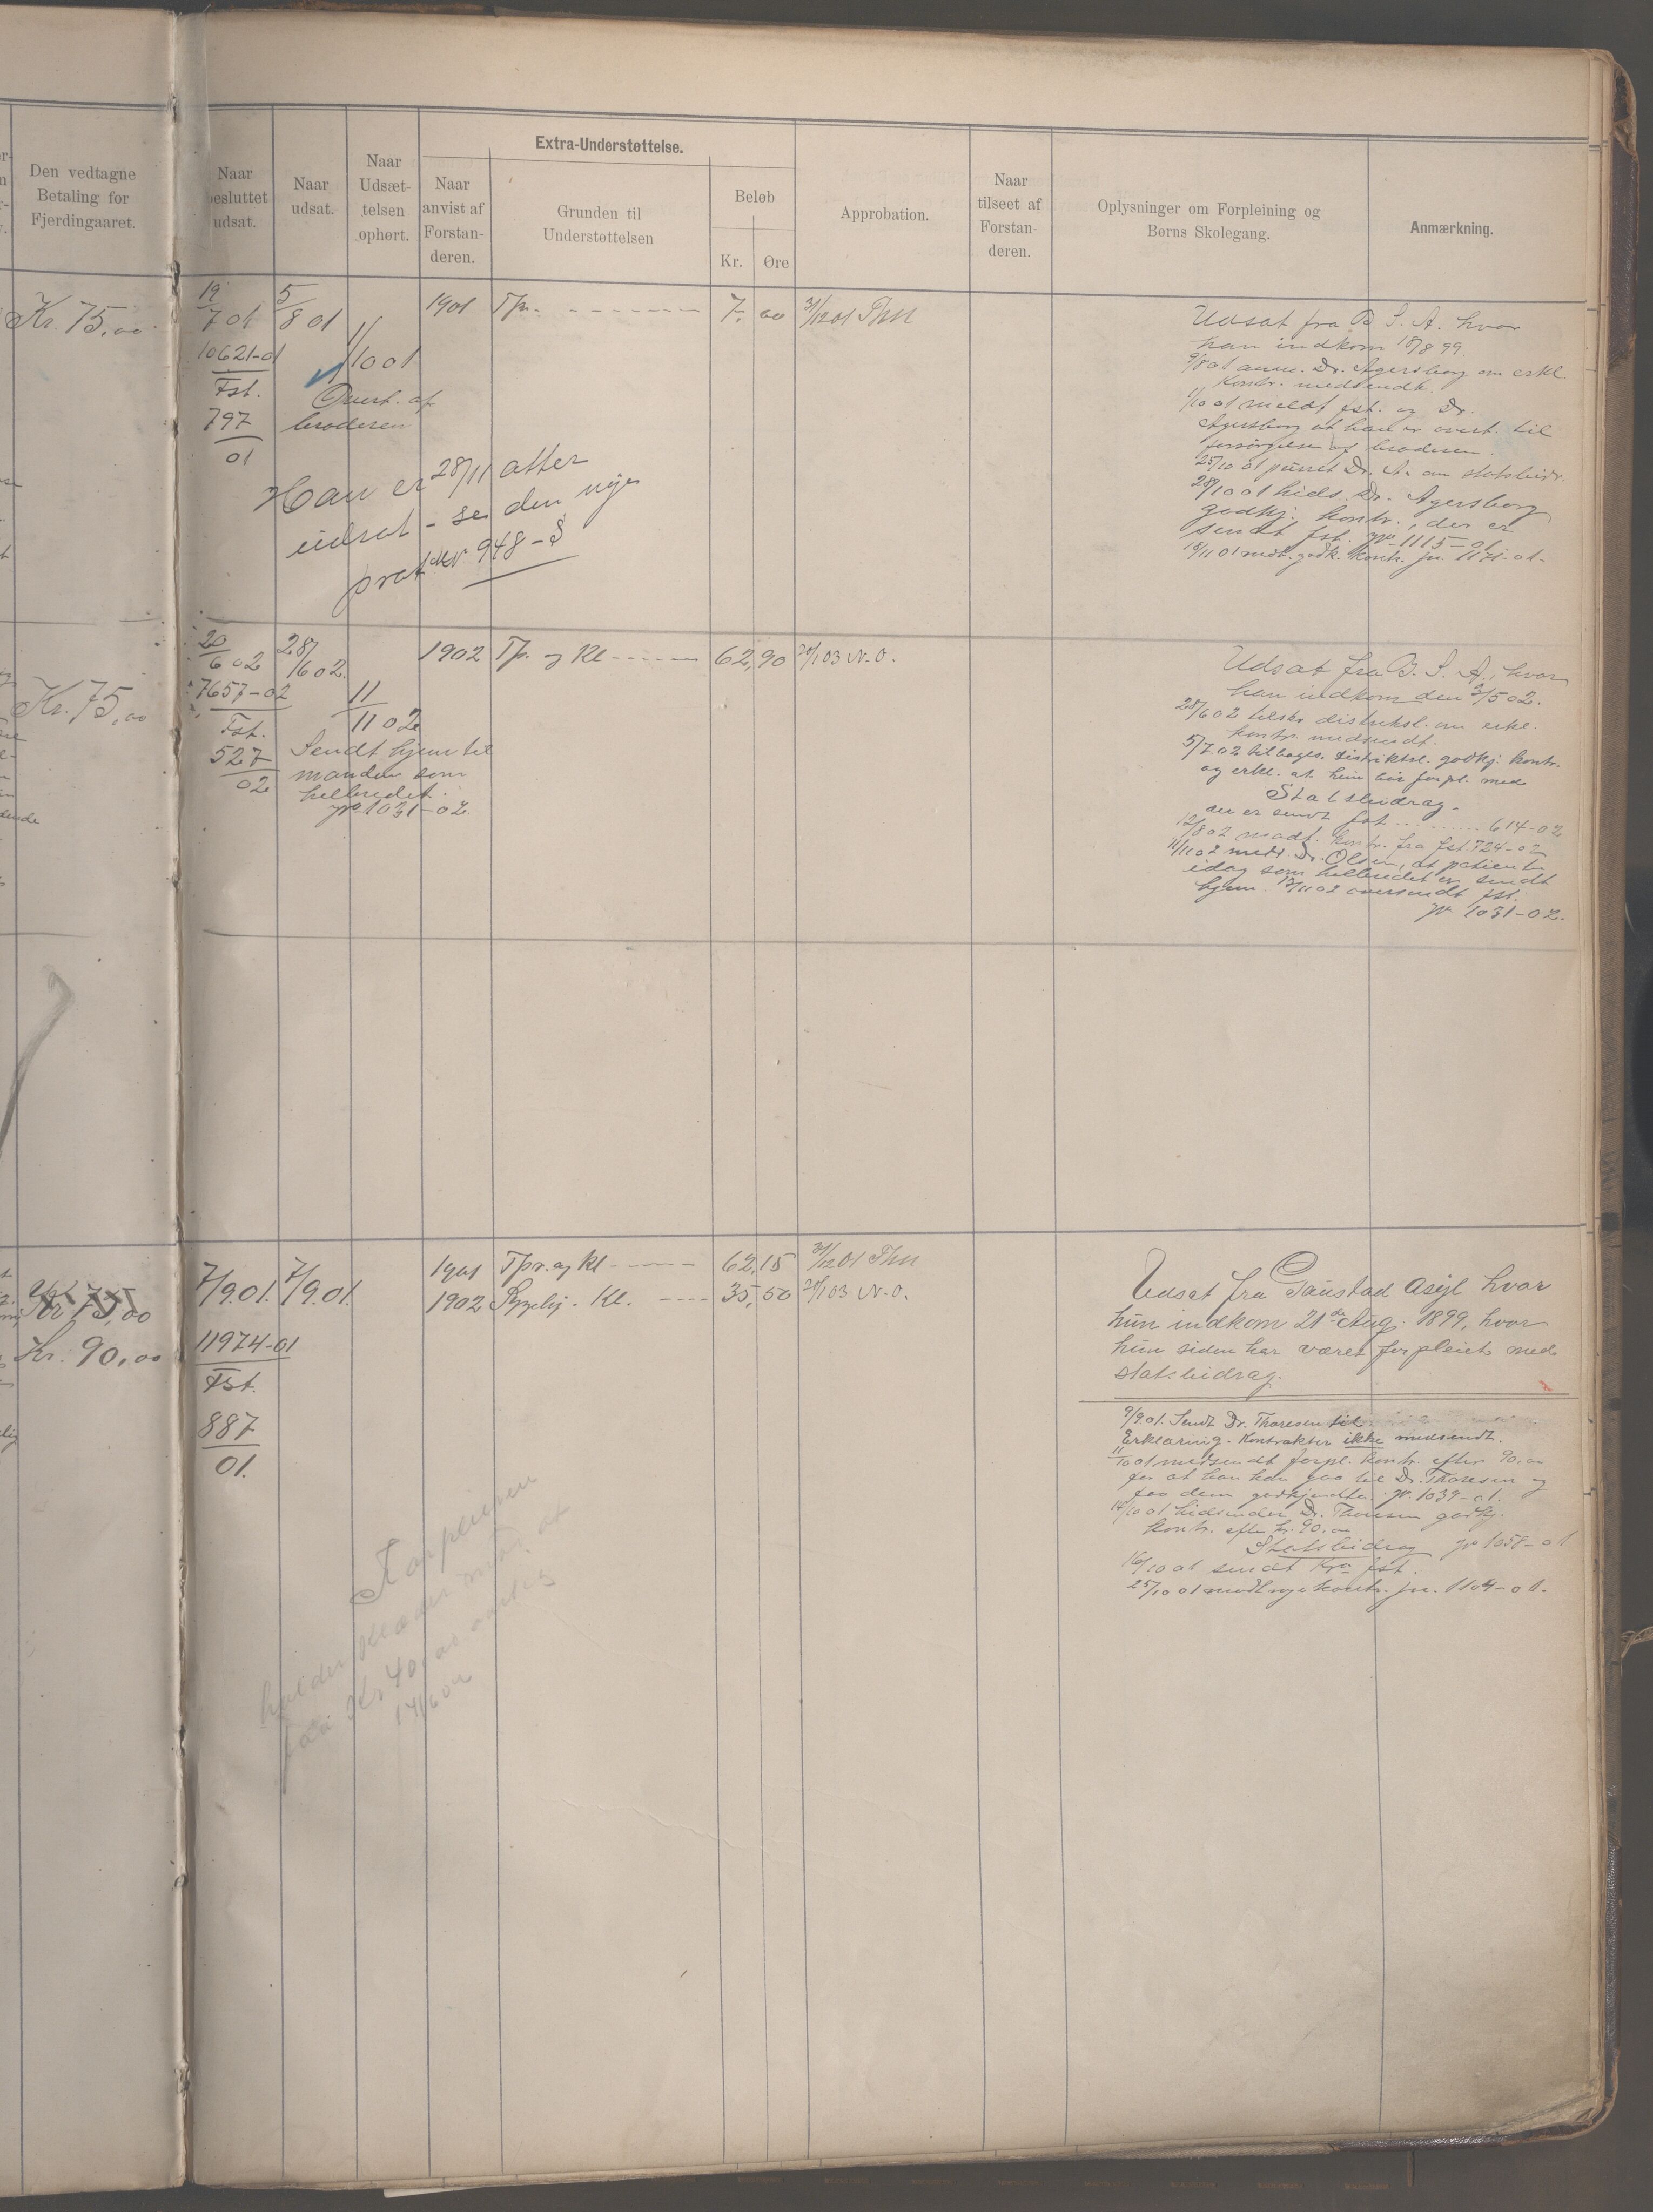 Den vedtagne
Betaling for
Fjerdingaaret.
Naar
besluttet
udsat.
Naar
udsat.
Naar
Udsæt-
telsen
ophørt.
Extra-Understøttelse.
Naar
anvist af
Forstan-
deren.
Grunden til
Understøttelsen
Beløb
Kr.
Øre
Approbation.
Naar
tilseet af
Forstan-
deren.
Oplysninger om Forpleining og
Børns Skolegang.
Anmærkning.
Kr. 75,00
19/7 01
10621-01
Fst.
797
01
5/8 01
1/10 01
Overt. af
broderen
1901 Tpr. 7,00 31/12 01 Thn
Han er 28/11 atter
udsat - se den nye
prot 948-S
Udsat fra B. S. A. hvor
han indkom 18/8 99.
9/8 01 anm. Dr. Agersborg om erkl.
Kontr. medsendt.
1/10 01 meldt fst. og Dr.
Agersborg at han er overt. til
forsørgelse af broderen.
25/10 01 purret Dr. A. om statsbidr.
28/10 01 hids. Dr. Agersborg
godkj. kontr., der er
sendt fst. jn 1115-01
18/11 01 mdt. godk. kontr. jn. 1171-01-
Kr. 75,00
20/6 02
7657-02
Fst.
527
02
28/6 02
11/11 02
Sendt hjem til
manden som
helbredet.
jn 1031-02.
1902 Tp. og Kl 62,90 20/1 03 N.O.
Udsat fra B. S. A., hvor
han indkom den 3/5 02.
28/6 02 tilskr distriktsl. om erkl.
kontr. medsendt.
5/7 02 tilbages. distriktsl. godkj. kontr.
og erkl. at hun bør forpl. med
Statsbidrag.
der er sendt fst. 614-02
12/8 02 modt. kontr. fra fst. 724-02
11/11 02 medd. Dr. Olsen, at patienten
idag som helbredet er sendt
hjem. 12/11 02 oversendt fst.
jn 1031-02.
Kr 75,00
Kr. 90,00
7/9 01.
7/9 01.
11974-01
Fst.
887
01.
1901 Tpr. og Kl 62,15 31/12 01 Thn
1902 Sygelej. Kl. 35,50 20/1 03 N.O.
Udsat fra Gaustad Asyl hvor
hun indkom 21de Aug. 1899, hvor
hun siden har været forpleiet med
statsbidrag.
9/9 01. Sendt Dr. Thoresen til
Erklæring. Kontrakter ikke medsendt.
11/10 01 medsendt forpl. kontr. efter 90,00
for at han kan gaa til Dr. Thoresen og
faa dem godkjendte. jn. 1039-01.
14/10 01 hidsender Dr. Thoresen godkj.
kontr. efter kr. 90,00
Statsbidrag jn 1058-01
16/10 01 sendt Kra fst.
25/10 01 modt nye kontr. jn. 1104-01.
Forpleieren
holder klæder mod at
faa Kr 40,00 aarlig